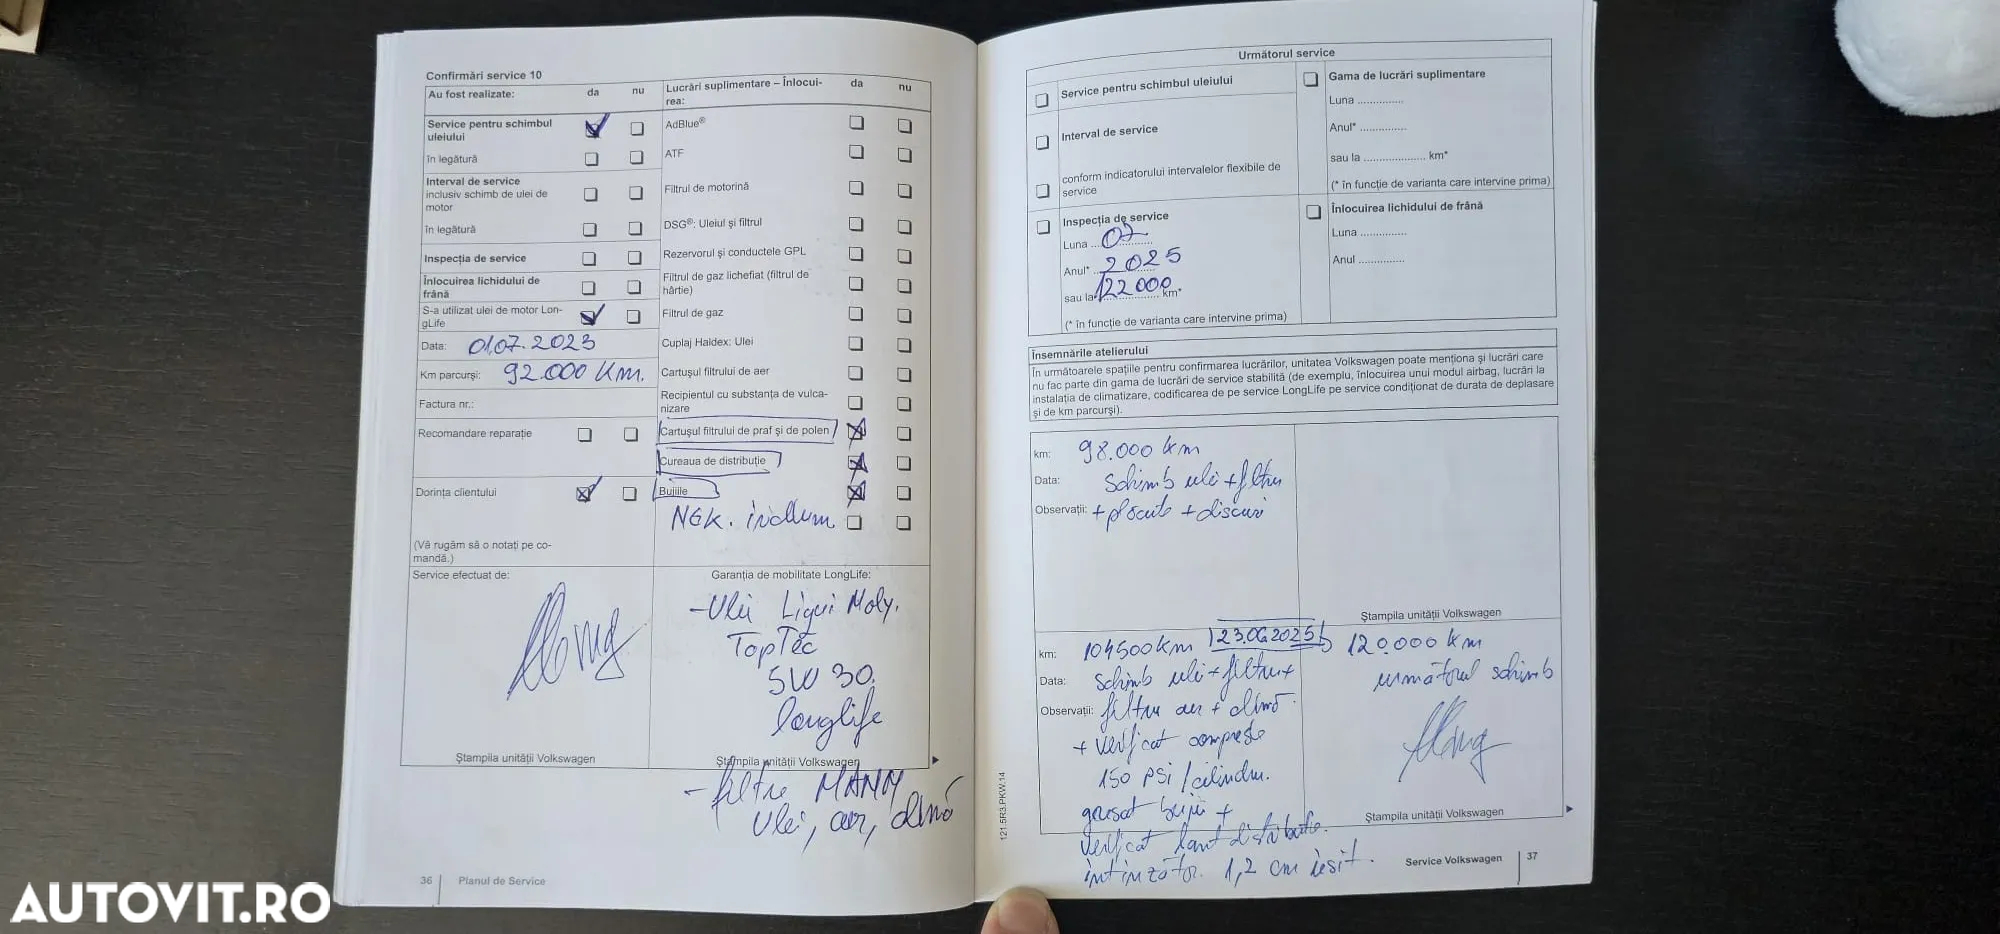 Confirmări service 10
Au fost realizate: da nu
Service pentru schimbul
uleiului
în legătură
Interval de service
inclusiv schimb de ulei de
motor
în legătură
Inspecția de service
Înlocuirea lichidului de
frână
S-a utilizat ulei de motor Lon-
gLife
Data: 01.07.2023
Km parcurși: 92.000 Km.
Factura nr.:
Recomandare reparație
Dorința clientului
(Vă rugăm să o notați pe co-
mandă.)
Service efectuat de:
Ștampila unității Volkswagen
Lucrări suplimentare – Înlocui-
rea: da nu
AdBlue®
ATF
Filtrul de motorină
DSG®: Uleiul și filtrul
Rezervorul și conductele GPL
Filtrul de gaz lichefiat (filtrul de
hârtie)
Filtrul de gaz
Cuplaj Haldex: Ulei
Cartușul filtrului de aer
Recipientul cu substanța de vulca-
nizare
Cartușul filtrului de praf și de polen
Cureaua de distribuție
Bujiile
NGK.
Garanția de mobilitate LongLife:
-Ulei Liqui Moly.
TopTec
5W30.
longlife
Ștampila unității Volkswagen
- filtre MANN
ulei, aer, climă
36 Planul de Service
Următorul service
Service pentru schimbul uleiului
Interval de service
conform indicatorului intervalelor flexibile de
service
Inspecția de service
Luna ... 07
Anul* 2025
sau la 122000 km*
(* în funcție de varianta care intervine prima)
Gama de lucrări suplimentare
Luna ...............
Anul* ...............
sau la .................... km*
(* în funcție de varianta care intervine prima)
Înlocuirea lichidului de frână
Luna ...............
Anul ...............
Însemnările atelierului
În următoarele spațiile pentru confirmarea lucrărilor, unitatea Volkswagen poate menționa și lucrări care
nu fac parte din gama de lucrări de service stabilită (de exemplu, înlocuirea unui modul airbag, lucrări la
instalația de climatizare, codificarea de pe service LongLife pe service condiționat de durata de deplasare
și de km parcurși).
km: 98.000 km
Data: Schimb ulei + filtru
Observații: + placute + discuri
Ștampila unității Volkswagen
km: 104500 km 23.06.2025
Data: Schimb ulei + filtru +
Observații: filtru aer + climă.
+ verificat compresie
150 psi/cilindru.
verificat lant distributie.
intinzător. 1,2 cm iesit.
120.000 km
următorul schimb
Ștampila unității Volkswagen
121.5R3.PKW.14
Service Volkswagen 37
AUTOVIT.RO